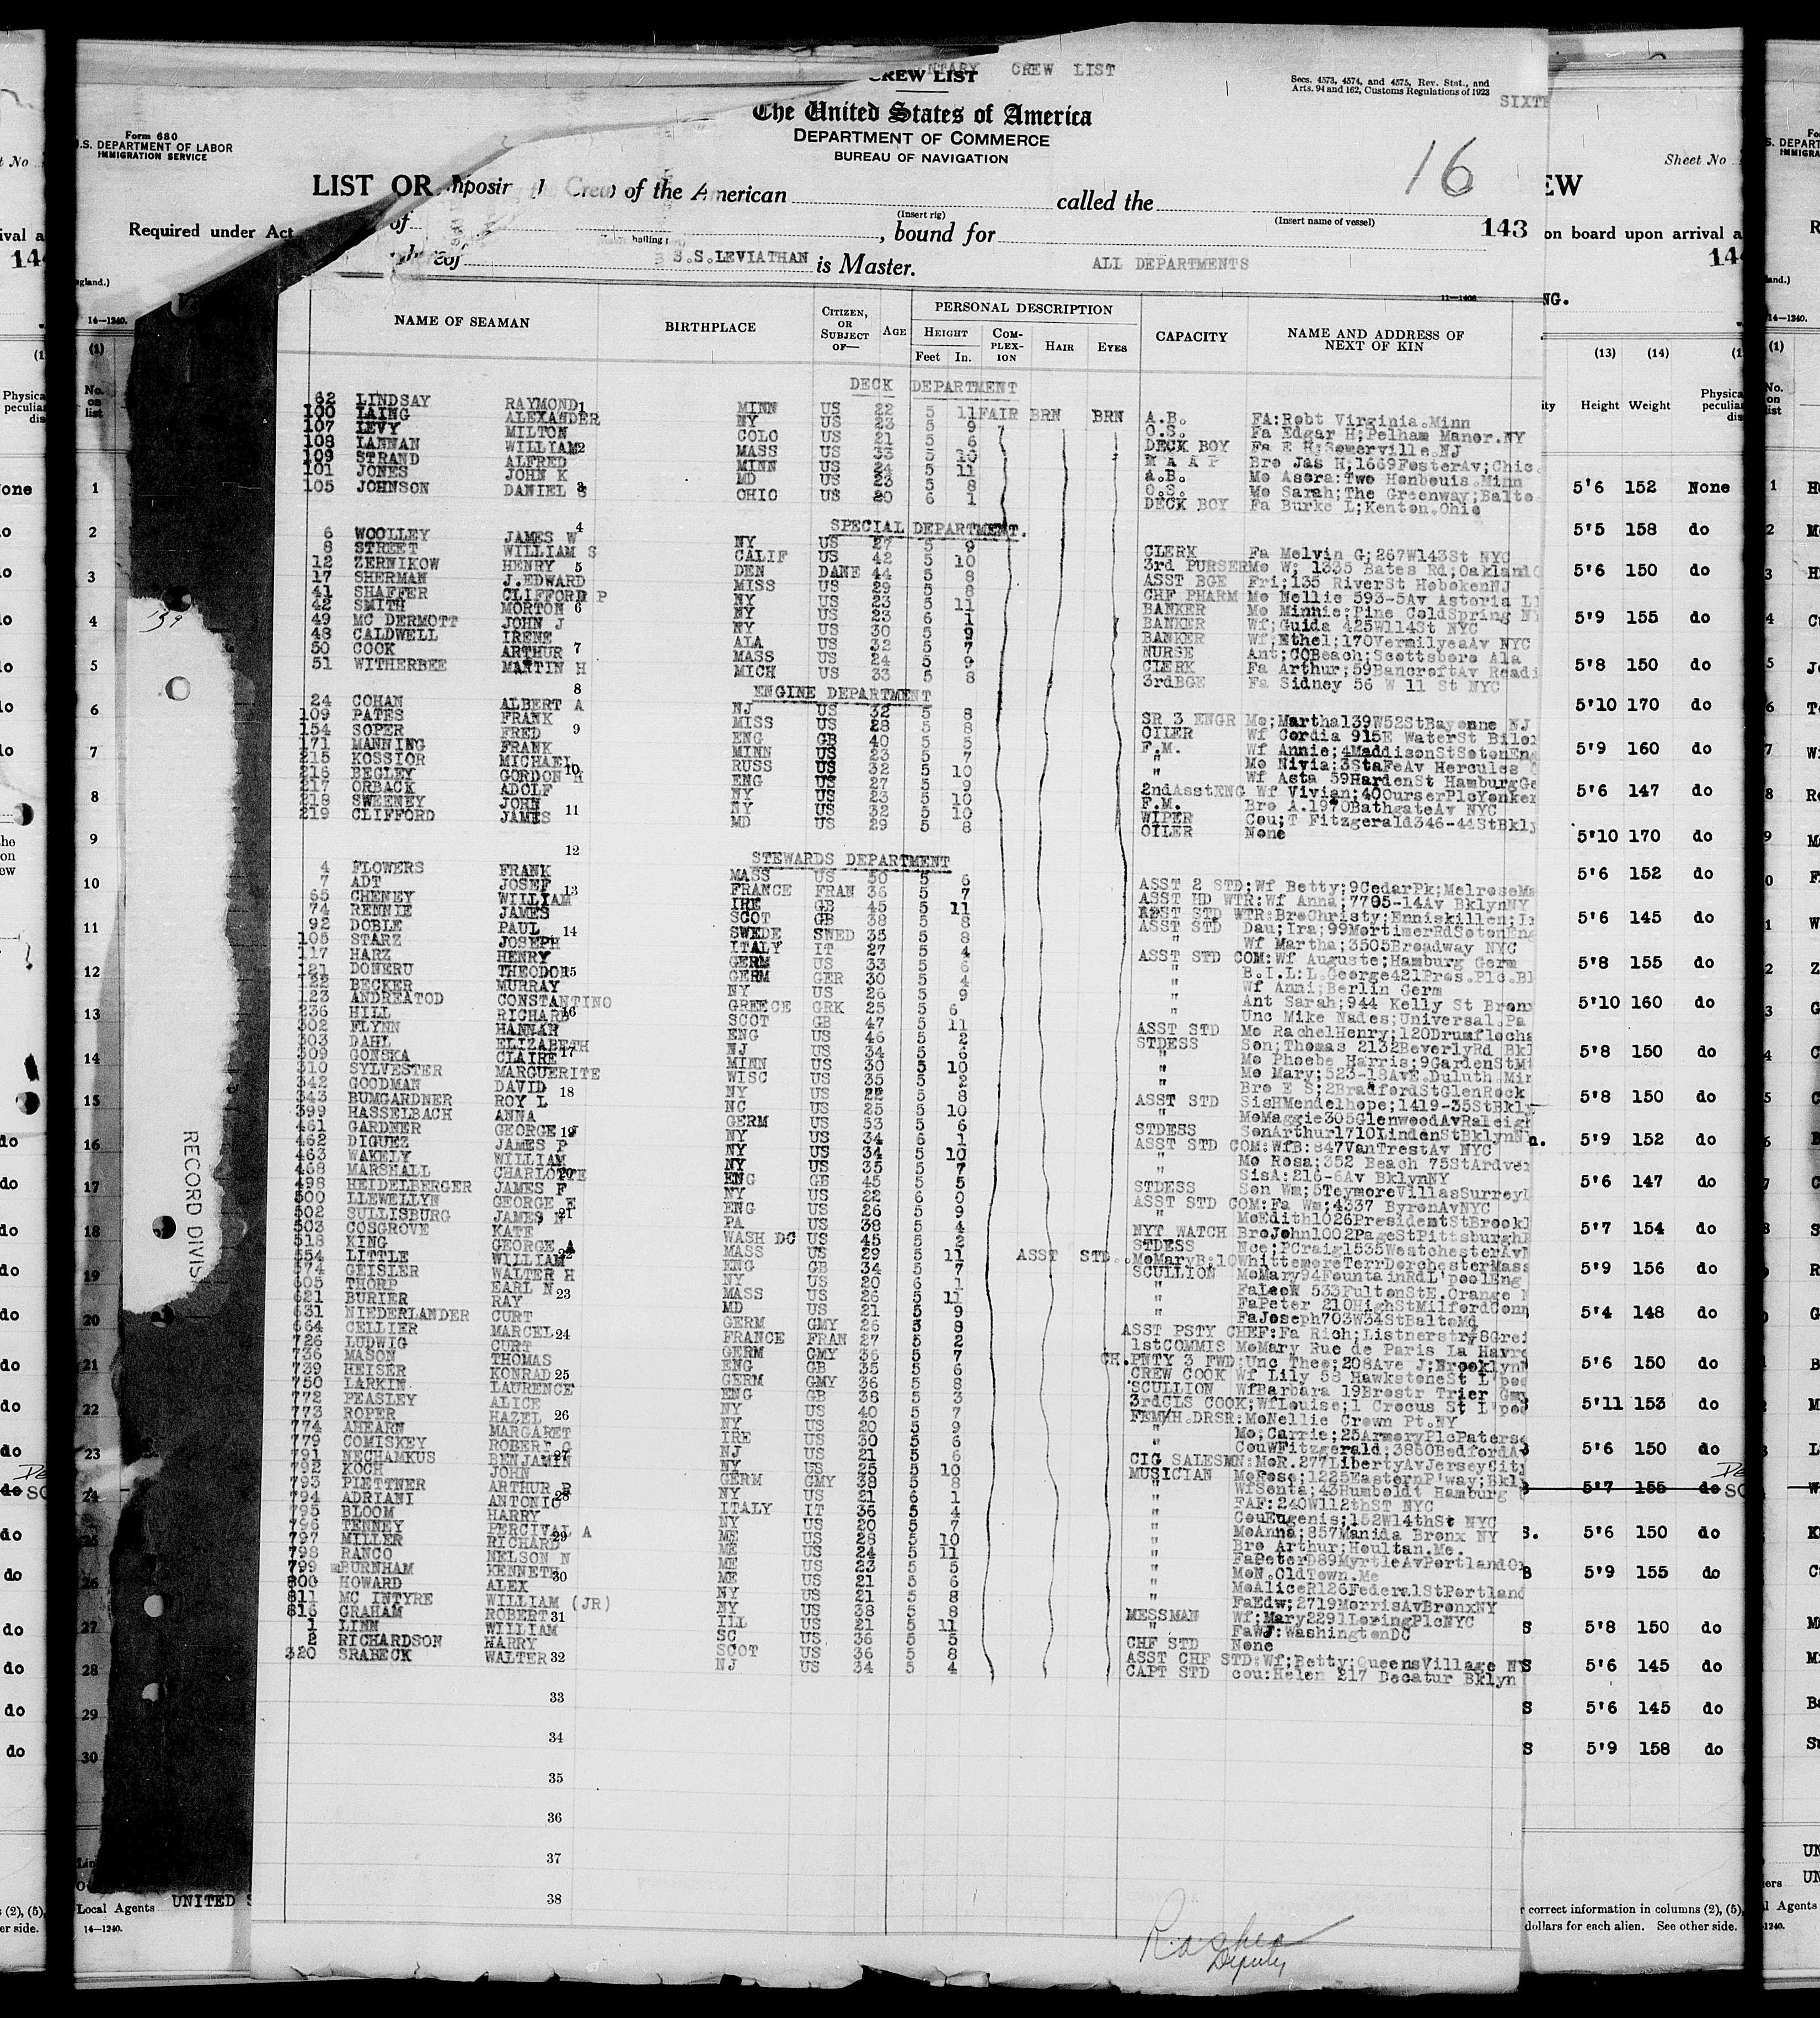 CREW LIST
NTARY CREW LIST
Secs. 4573, 4574, and 4575, Rev. Stat., and
Arts. 94 and 162, Customs Regulations of 1923
SIXT
The United States of America
DEPARTMENT OF COMMERCE
BUREAU OF NAVIGATION
Form 680
U.S. DEPARTMENT OF LABOR
IMMIGRATION SERVICE
16
LIST OR mposin Crew of the American called the
(Insert rig) (Insert name of vessel)
Required under Act of , bound for 143
S.S.LEVIATHAN is Master. ALL DEPARTMENTS
11-1408
NAME OF SEAMAN BIRTHPLACE CITIZEN, OR SUBJECT OF— AGE PERSONAL DESCRIPTION CAPACITY NAME AND ADDRESS OF NEXT OF KIN
HEIGHT COMPLEXION HAIR EYES
Feet In.
DECK DEPARTMENT
62 LINDSAY RAYMOND MINN US 22 5 11 FAIR BRN BRN A.B. FA:Robt Virginia.Minn
100 LAING ALEXANDER NY US 23 5 9 O.S. Fa Edgar H;Pelham Manor.NY
107 LEVY MILTON COLO US 21 5 6 DECK BOY Fa E H;Somerville.NJ
108 LANNAN WILLIAM MASS US 33 5 10 M A A P Bro Jas H,1669FosterAv;Chic.
109 STRAND ALFRED MINN US 24 5 11 A.B. Mo Asora:Two Honbouis.Minn
101 JONES JOHN K MD US 23 5 8 O.S. Mo Sarah;The Greenway;Balto
105 JOHNSON DANIEL S OHIO US 20 6 1 DECK BOY Fa Burke L;Kenton.Ohio
SPECIAL DEPARTMENT.
6 WOOLLEY JAMES W NY US 27 5 9 CLERK Fa Melvin G;267W143St NYC
8 STREET WILLIAM S CALIF US 42 5 10 3rd PURSER Mo W; 1335 Bates Rd;Oakland
12 ZERNIKOW HENRY DEN DANE 44 5 8 ASST BGE Fri;135 RiverSt HobokenNJ
17 SHERMAN J.EDWARD MISS US 29 5 8 CHF PHARM Mo Nellie 593-5Av Astoria L
41 SHAFFER CLIFFORD P NY US 23 5 11 BANKER Mo Minnie;Pine ColdSpring NY
42 SMITH MORTON NY US 23 6 1 BANKER Wf;Guida 425W114St NYC
49 MC DERMOTT JOHN J NY US 30 5 9 BANKER Wf;Ethel;170VermilyeaAv NYC
48 CALDWELL IRENE ALA US 32 5 7 NURSE Ant;COBeach;Scottsboro Ala
50 COOK ARTHUR MASS US 24 5 9 CLERK Fa Arthur;59BancroftAv Readi
51 WITHERBEE MARTIN H MICH US 33 5 8 3rdBGE Fa Sidney 56 W 11 St NYC
ENGINE DEPARTMENT
24 COHAN ALBERT A NJ US 32 5 8 SR 3 ENGR Mo;Martha139W52StBayonne NJ
109 PATES FRANK MISS US 28 5 8 OILER Wf Cordia 915E WaterSt Bilox
154 SOPER FRED ENG GB 40 5 5 F.M. Wf Annie;4MaddisonStSotonEng
171 MANNING FRANK MINN US 23 5 7 " Mo Nivia;3StaFeAv Hercules
215 KOSSIOR MICHAEL RUSS US 32 5 10 " Wf Asta 59HardenSt HamburgGe
216 BEGLEY GORDON H ENG US 27 5 9 2ndAsstENG Wf Vivian;40OurserPlcYonker
217 ORBACK ADOLF NY US 23 5 10 F.M. Bro A.1970BathgateAv NYC
218 SWEENEY JOHN NY US 32 5 10 WIPER Cou;T Fitzgerald346-44StBkly
219 CLIFFORD JAMES MD US 29 5 8 OILER None
STEWARDS DEPARTMENT
4 FLOWERS FRANK MASS US 50 5 6 ASST 2 STD;Wf Betty;9CedarPk;MelroseMa
7 ADT JOSEF FRANCE FRAN 36 5 7 ASST HD WTR:Wf Anna;7705-14Av BklynNY
65 CHENEY WILLIAM IRE GB 45 5 11 ASST STD WTR:BroChristy;Enniskillen;Ir
74 RENNIE JAMES SCOT GB 38 5 8 ASST STD Dau;Ira;99MortimerRdSotonEng
92 DOBLE PAUL SWEDE SWED 35 5 8 " Wf Martha;3505Broadway NYC
105 STARZ JOSEPH ITALY IT 27 5 4 ASST STD COM:Wf Auguste;Hamburg Germ
117 HARZ HENRY GERM US 33 5 6 " B.I.L:L.George421Pros.Plc.Bl
121 DONERU THEODOR GERM GER 30 5 4 " Wf Anni;Berlin Germ
122 BECKER MURRAY NY US 26 5 9 " Ant Sarah;944 Kelly St Bronx
123 ANDREATOD CONSTANTINO GREECE GRK 25 5 6 " Unc Mike Nades;Universal.Pa
236 HILL RICHARD SCOT GB 47 5 11 ASST STD Mo RachelHenry;120Drumflocha
302 FLYNN HANNAH ENG US 46 5 2 STDESS Son;Thomas 2132BeverlyRd Bkl
303 DAHL ELIZABETH NJ US 34 5 6 " Mo Phoebe Harris;9GardenStMt
309 GONSKA CLAIRE MINN US 30 5 10 " Mo Mary;523-18AvE.Duluth.Min
310 SYLVESTER MARGUERITE WISC US 35 5 2 " Bro E S;2BradfordStGlenRock
342 GOODMAN DAVID NY US 22 5 8 ASST STD SisHMendelhope;1419-35StBkly
343 BUMGARDNER ROY L NC US 25 5 10 " MoMaggie305GlenwoodAvRaleigh
399 HASSELBACH ANNA GERM US 53 5 6 STDESS SonArthur1710LindenStBklynN
461 GARDNER GEORGE J NY US 34 6 1 ASST STD COM:WfB:847VanTrestAv NYC
462 DIGUEZ JAMES P NY US 34 5 10 " Mo Rosa;352 Beach 75StArdver
463 WAKELY WILLIAM NY US 35 5 7 " SisA:216-6Av BklynNY
468 MARSHALL CHARLOTTE ENG GB 45 5 5 STDESS Son Wm;5TeymoreVillasSurrey
498 HEIDELBERGER JAMES F NY US 22 6 0 ASST STD COM:Fa Wm;4337 ByronAvNYC
500 LLEWELLYN GEORGE E ENG US 26 5 9 " MoEdith1026PresidentStBrookl
502 SULLISBURG JAMES N PA US 38 5 4 NYT WATCH BroJohn1002PageStPittsburghP
503 COSGROVE KATE WASH DC US 45 5 2 STDESS Nce;PCraig1535WestchesterAvN
518 KING GEORGE A MASS US 29 5 11 ASST STD..MoMaryB;10WhittemoreTerrDorchesterMass
554 LITTLE WILLIAM ENG GB 34 5 7 SCULLION MoMary94FountainRdL'poolEng
574 GEISLER WALTER H NY US 20 6 1 " FaLeoW 533FultonStE.Orange
605 THORP EARL N MASS US 26 5 11 " FaPeter 210HighStMilfordConn
621 BURIER RAY MD US 21 5 9 " FaJoseph703W34StBaltoMd
631 NIEDERLANDER CURT GERM GMY 26 5 8 ASST PSTY CHEF:Fa Rich;Listnerstr8Grei
664 CELLIER MARCEL FRANCE FRAN 27 5 2 1stCOMMIS MoMary Rue de Paris La Havre
726 LUDWIG CURT GERM GMY 36 5 7 CH.PNTY 3 FWD:Unc Theo;208Ave J;Brooklyn
736 MASON THOMAS ENG GB 35 5 6 CREW COOK Wf Lily 58 HawkstoneSt L'poo
739 HEISER KONRAD GERM GMY 36 5 8 SCULLION WfBarbara 19Brostr Trier Gmy
750 LARKIN LAURENCE ENG GB 38 5 3 3rdCLS COOK;WfLouise;1 Crocus St L'poo
772 PEASLEY ALICE NY US 40 5 7 FEM/H.DRSR:MoNellie Crown Pt.NY
773 ROPER HAZEL NY US 20 5 9 " Mo;Carrie;25ArmoryPlcPaterso
774 AHEARN MARGARET IRE US 30 5 6 " CouWFitzgerald;3860BedfordA
779 COMISKEY ROBERT G NJ US 21 5 6 CIG SALESMN:MoR.277LibertyAvJerseyCity
791 NECHAMKUS BENJAMIN NY US 25 5 10 MUSICIAN MoRose;1225EasternP'way;Bkl
792 KOCH JOHN GERM GMY 38 5 8 " WfSenta;43Humboldt Hamburg
793 PLETTNER ARTHUR R NY US 21 6 1 " FAF:240W112thST NYC
794 ADRIANI ANTONIO ITALY IT 36 5 4 " CouEugenis;152W14thSt NYC
795 BLOOM HARRY NY US 20 5 7 " MoAnna;857Manida Bronx NY
796 TENNEY PERCIVAL A ME US 28 5 10 " Bro Arthur;Houltan.Me.
797 MILLER RICHARD ME US 24 5 11 " FaPeterD89MyrtleAvPortland
798 RANCO NELSON N ME US 23 5 5 " MoN.OldTown.Me
799 BURNHAM KENNETH ME US 21 5 6 " MoAliceR126FederalStPortland
800 HOWARD ALEX NY US 21 5 8 " FaEdw;2719MorrisAvBronxNY
811 MC INTYRE WILLIAM (JR) NY US 38 5 8 MESSMAN Wf;Mary2291LoringPlcNYC
816 GRAHAM ROBERT ILL US 21 5 11 " FaWJ:WashingtonDC
1 LINN WILLIAM SC US 36 5 5 CHF STD None
2 RICHARDSON HARRY SCOT US 36 5 8 ASST CHF STD:Wf;Betty;QueensVillage NY
320 SRABECK WALTER NJ US 34 5 4 CAPT STD cou:Helen 217 Decatur Bklyn
33
34
35
36
37
38
Deputy
RECORD DIVIS
UNITED S
Local Agents
14-1240.
Sheet No
EW
on board upon arrival a
144
NG.
(13) (14)
Height Weight Physica peculia dis
5'6 152 None
5'5 158 do
5'6 150 do
5'9 155 do
5'8 150 do
5'10 170 do
5'9 160 do
5'6 147 do
5'10 170 do
5'6 152 do
5'6 145 do
5'8 155 do
5'10 160 do
5'8 150 do
5'8 150 do
5'9 152 do
5'6 147 do
5'7 154 do
5'9 156 do
5'4 148 do
5'6 150 do
5'11 153 do
5'6 150 do
5'7 155 do
5'6 150 do
5'9 155 do
5'8 150 do
5'6 145 do
5'6 145 do
5'9 158 do
correct information in columns (2), (5),
dollars for each alien. See other side.